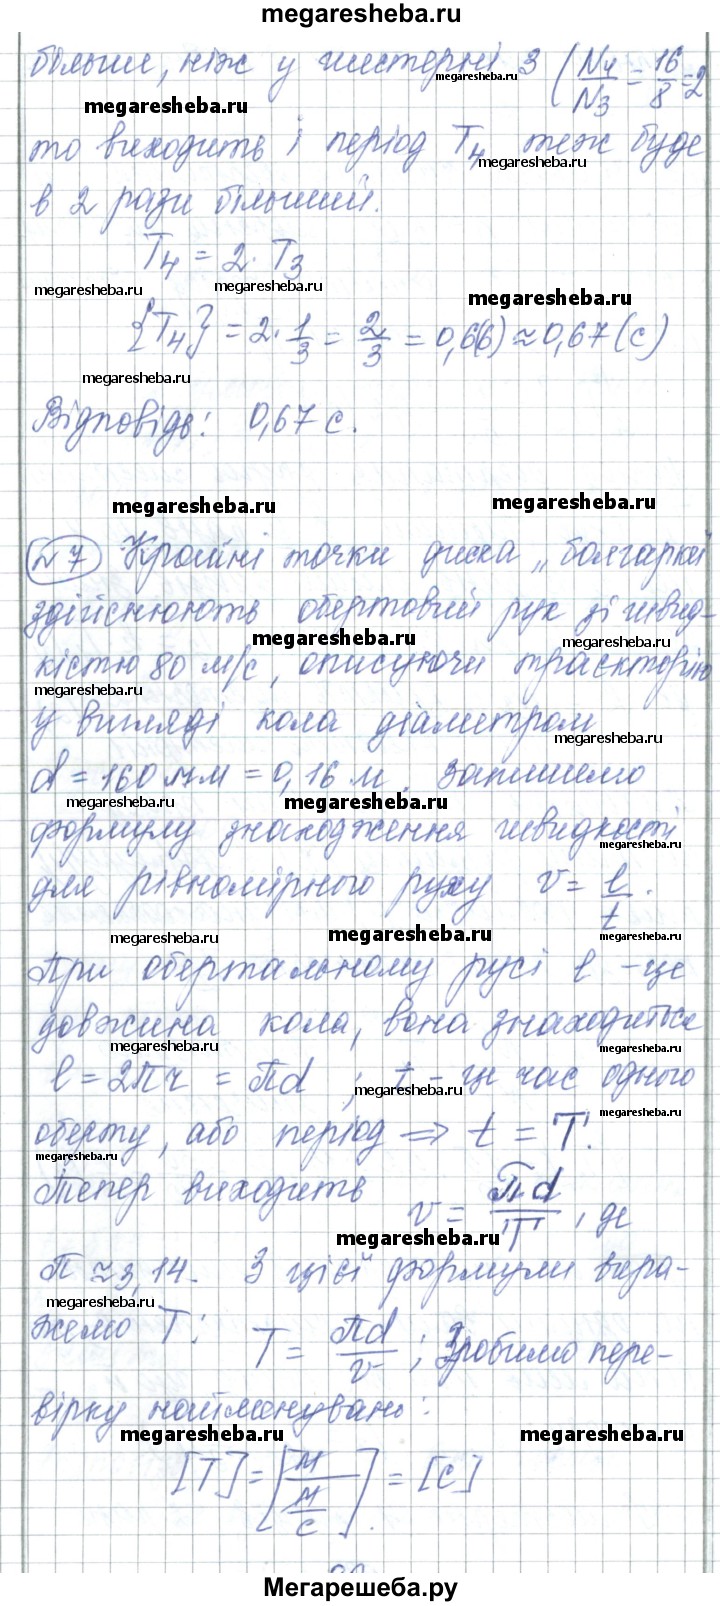 megaresheba.ru
більше, ніж у шестерні 3 (N4/N3 = 16/8 = 2
megaresheba.ru
megaresheba.ru
то виходить і період T4 теж буде
megaresheba.ru
в 2 рази більший.
T4 = 2 · T3
megaresheba.ru
megaresheba.ru
megaresheba.ru
{T4} = 2 · 1/3 = 2/3 = 0,6(6) ≈ 0,67 (с)
megaresheba.ru
Відповідь: 0,67 с.
megaresheba.ru
megaresheba.ru
№7 Крайні точки диска „болгарки
здійснюють обертовий рух зі швид-
megaresheba.ru
megaresheba.ru
кістю 80 м/с, описуючи траєкторію
megaresheba.ru
у вигляді кола діаметром
megaresheba.ru
d = 160 мм = 0,16 м. Запишемо
megaresheba.ru
megaresheba.ru
megaresheba.ru
формулу знаходження швидкості
megaresheba.ru
для рівномірного руху v = l/t.
megaresheba.ru
megaresheba.ru
megaresheba.ru
При обертальному русі l - це
довжина кола, вона знаходиться
megaresheba.ru
megaresheba.ru
l = 2πr = πd ; t - це час одного
megaresheba.ru
megaresheba.ru
оберту, або період ⇒ t = T.
megaresheba.ru
Тепер виходить v = πd/T, де
megaresheba.ru
π ≈ 3,14. З цієї формули вира-
megaresheba.ru
жемо T: T = πd/v ; Зробимо пере-
вірку найменувань:
megaresheba.ru
megaresheba.ru
[T] = [м/(м/с)] = [с]
Мегарешеба.ру